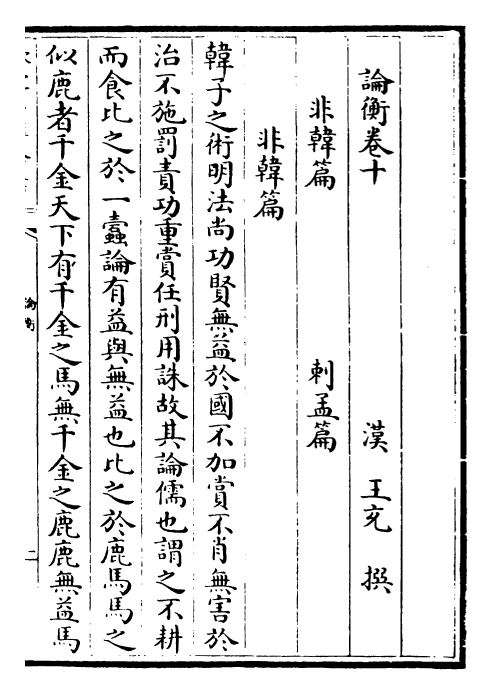 論衡卷十
漢 王充 撰
非韓篇 刺孟篇
非韓篇
韓子之術明法尚功賢無益於國不加賞不肖無害於
治不施罰責功重賞任刑用誅故其論儒也謂之不耕
而食比之於一蠹論有益與無益也比之於鹿馬馬之
似鹿者千金天下有千金之馬無千金之鹿鹿無益馬
論衡
二